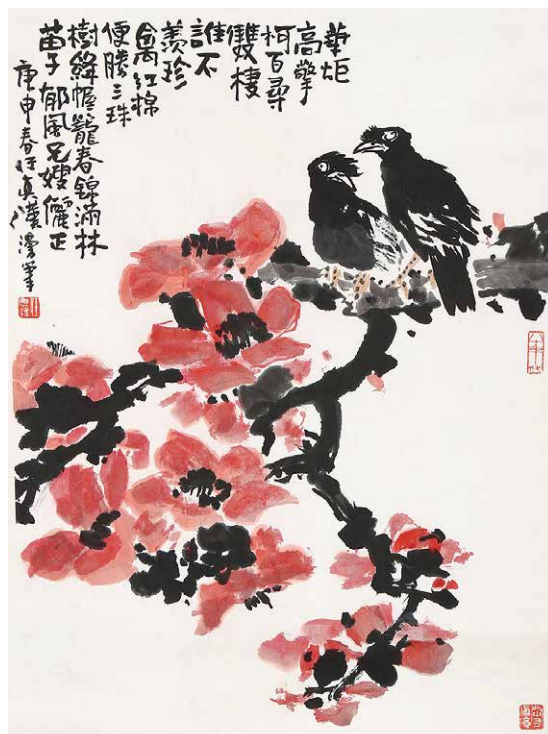 華炬
高擎
柯百尋
雙棲
誰不
羨珍
禽紅棉
便勝三珠
樹絳幄籠春錦滿林
苗子郁風兄嫂儷正
庚申春任真漢漫筆